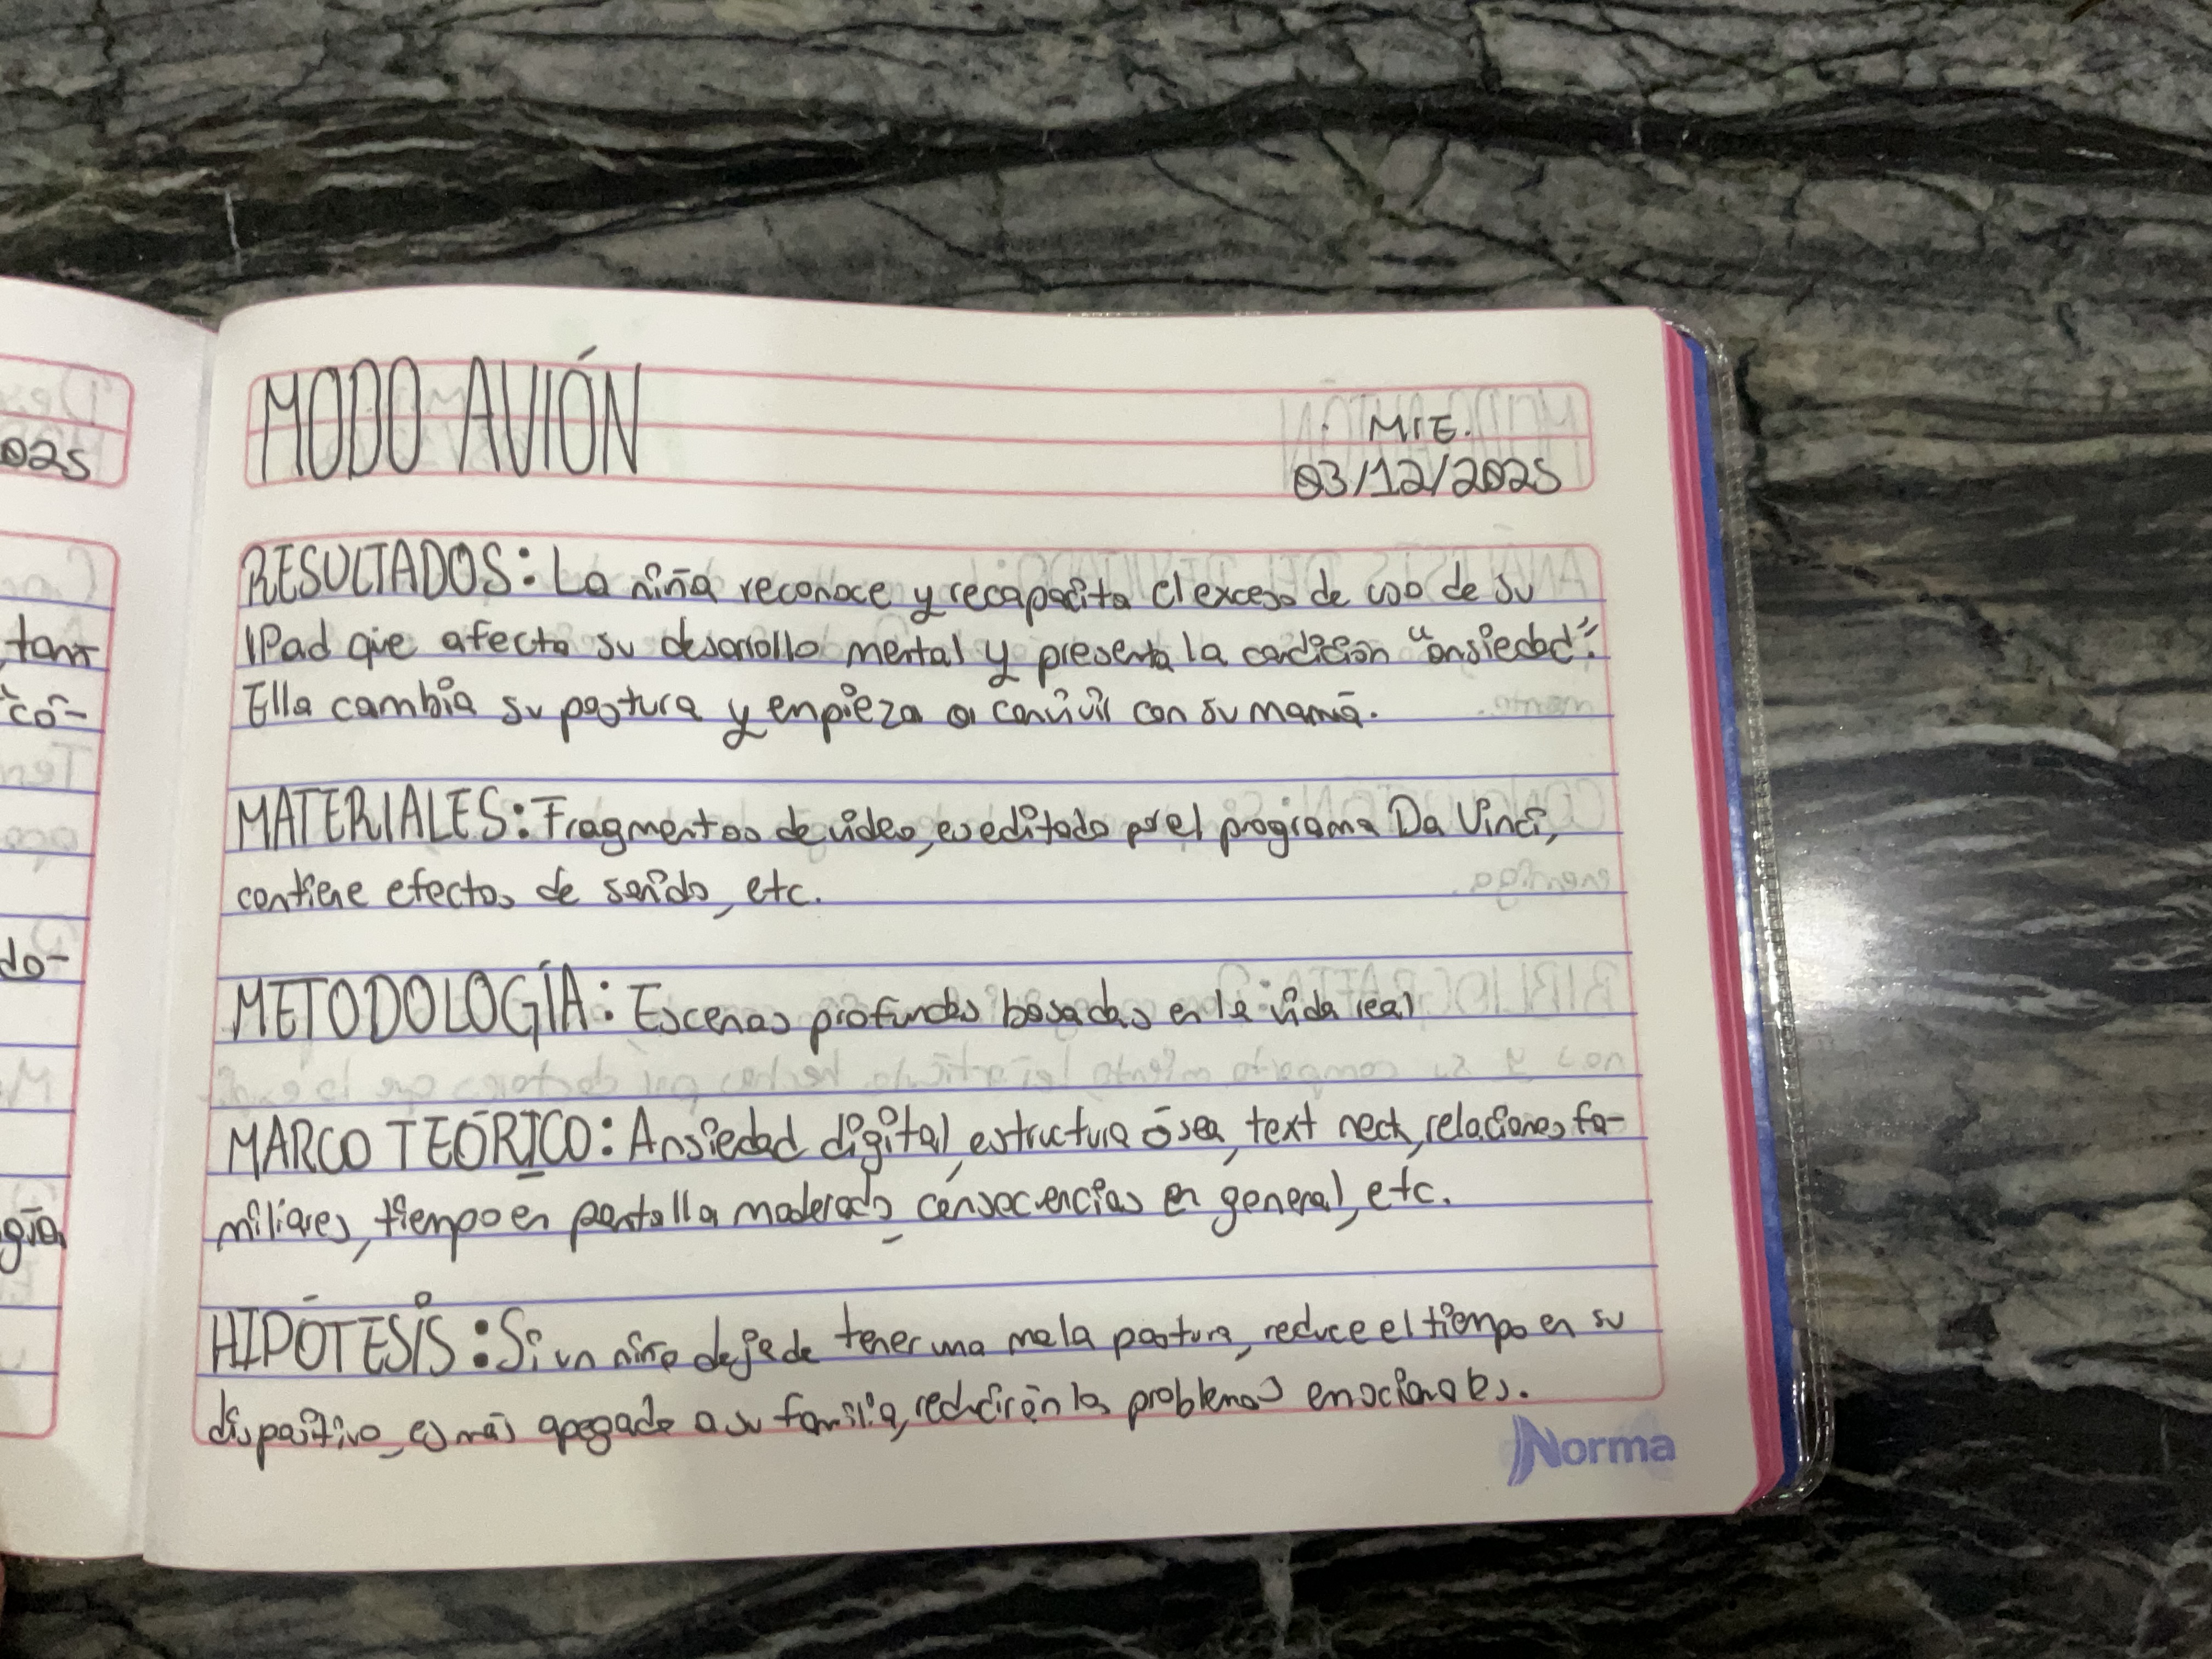 MODO AVIÓN
MIE.
03/12/2025
RESULTADOS: La niña reconoce y recapacita el exceso de uso de su
IPad que afecta su desarrollo mental y presenta la condición "ansiedad".
Ella cambia su postura y empieza a convivir con su mamá.
MATERIALES: Fragmentos de video, es editado por el programa Da Vinci,
contiene efectos de sonido, etc.
METODOLOGÍA: Escenas profundas basadas en la vida real
MARCO TEÓRICO: Ansiedad digital, estructura ósea, text neck, relaciones fa-
miliares, tiempo en pantalla moderado, consecuencias en general, etc.
HIPÓTESIS: Si un niño deja de tener una mala postura, reduce el tiempo en su
dispositivo, es más apegado a su familia, reducirán los problemas emocionales.
Norma
025
có-
do-
gía